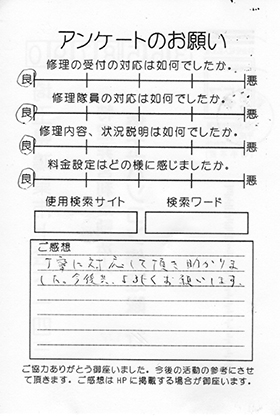 アンケートのお願い
修理の受付の対応は如何でしたか。
良 悪
修理隊員の対応は如何でしたか。
良 悪
修理内容、状況説明は如何でしたか。
良 悪
料金設定はどの様に感じましたか。
良 悪
使用検索サイト 検索ワード
ご感想
丁寧に対応して頂き助かりま
した。今後共、よろしくお願いします。
ご協力ありがとう御座いました。今後の活動の参考にさせ
て頂きます。ご感想はHPに掲載する場合が御座います。